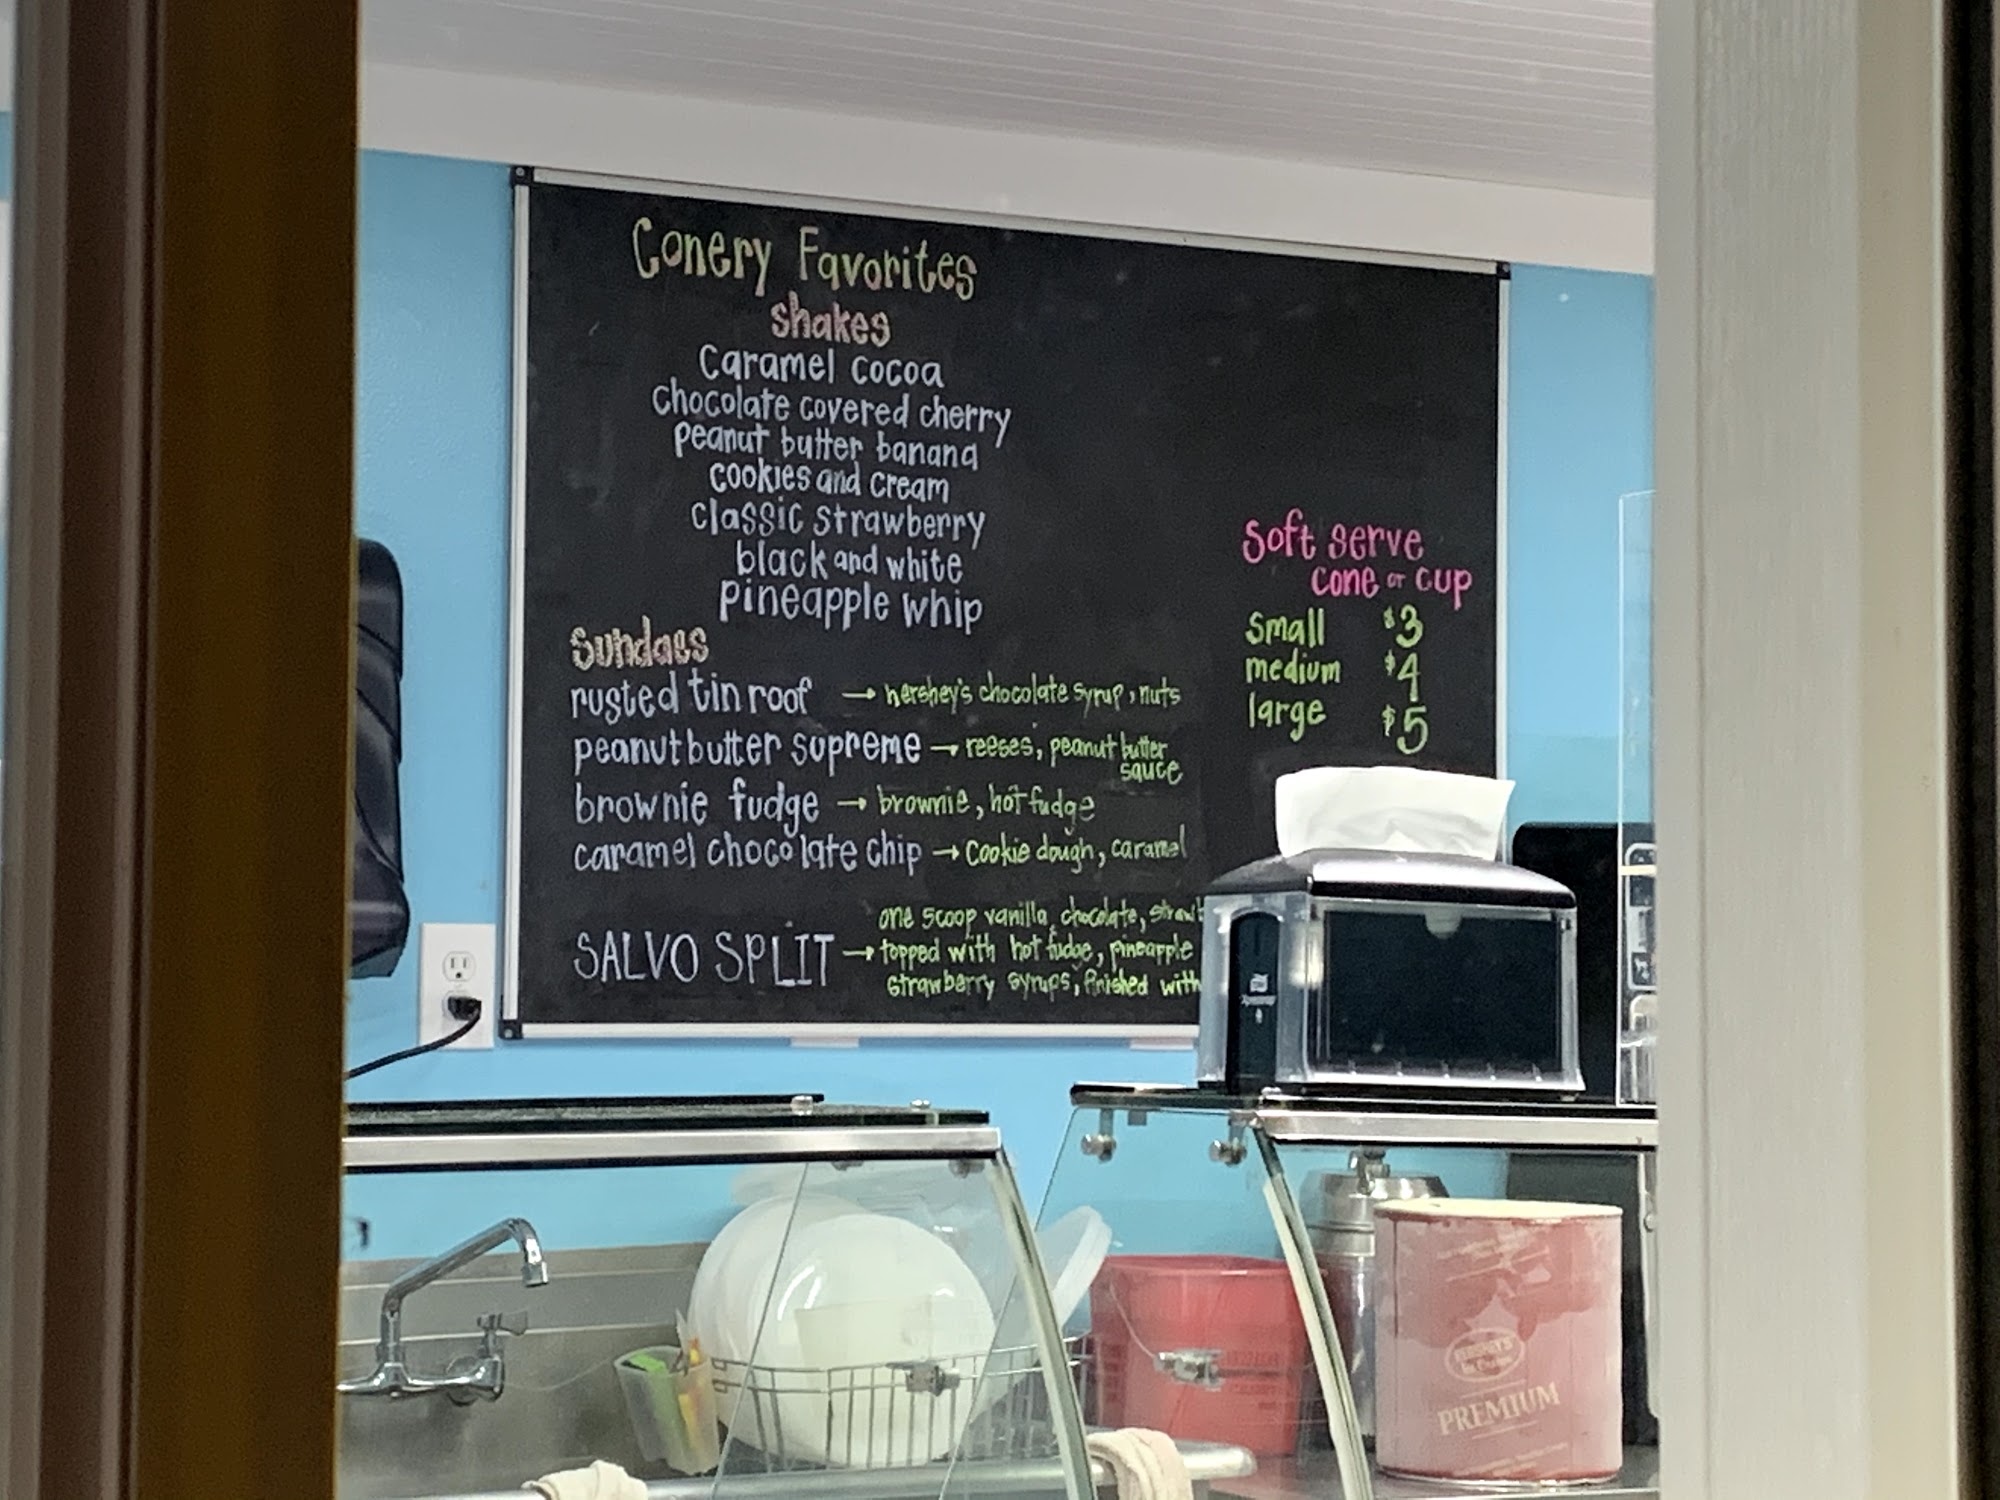 Conery Favorites
shakes
Caramel cocoa
chocolate covered cherry
peanut butter banana
cookies and cream
classic strawberry
black and white
pineapple whip
Sundaes
rusted tin roof → hershey's chocolate syrup, nuts
peanut butter supreme → reeses, peanut butter
sauce
brownie fudge → brownie, hot fudge
caramel chocolate chip → cookie dough, caramel
one scoop vanilla, chocolate,
SALVO SPLIT → topped with hot fudge, pineapple
strawberry syrups, finished with
Soft serve
cone or cup
Small $3
medium $4
large $5
HERSHEY'S
Ice Cream
PREMIUM